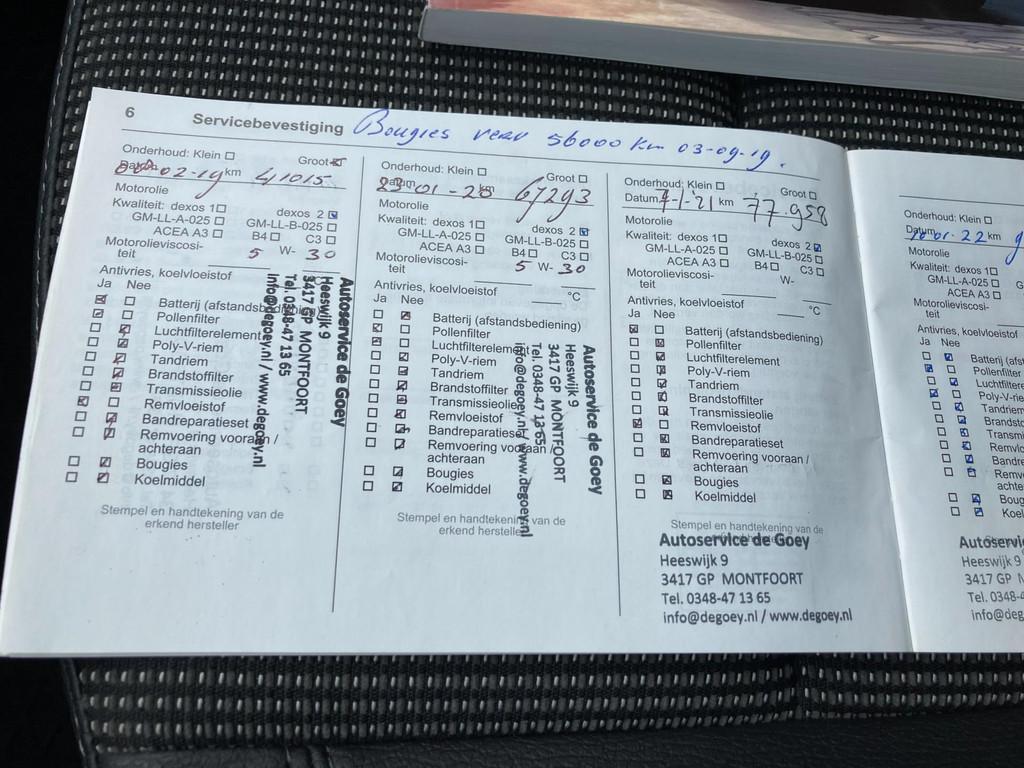 6 Servicebevestiging Bougies verv 56000 km 03-09-19.
Onderhoud: Klein Groot
Datum 02-19 km 41015
Motorolie
Kwaliteit: dexos 1 dexos 2
GM-LL-A-025 GM-LL-B-025
ACEA A3 B4 C3
Motorolieviscosi-
teit 5 W- 30
Antivries, koelvloeistof
Ja Nee
Batterij (afstandsbediening)
Pollenfilter
Luchtfilterelement
Poly-V-riem
Tandriem
Brandstoffilter
Transmissieolie
Remvloeistof
Bandreparatieset
Remvoering vooraan /
achteraan
Bougies
Koelmiddel
Stempel en handtekening van de
erkend hersteller
Autoservice de Goey
Heeswijk 9
3417 GP MONTFOORT
Tel. 0348-47 13 65
info@degoey.nl / www.degoey.nl
Onderhoud: Klein Groot
Datum 23-01-20 km 67293
Motorolie
Kwaliteit: dexos 1 dexos 2
GM-LL-A-025 GM-LL-B-025
ACEA A3 B4 C3
Motorolieviscosi-
teit 5 W- 30
Antivries, koelvloeistof °C
Ja Nee
Batterij (afstandsbediening)
Pollenfilter
Luchtfilterelement
Poly-V-riem
Tandriem
Brandstoffilter
Transmissieolie
Remvloeistof
Bandreparatieset
Remvoering vooraan /
achteraan
Bougies
Koelmiddel
Stempel en handtekening van de
erkend hersteller
Autoservice de Goey
Heeswijk 9
3417 GP MONTFOORT
Tel. 0348-47 13 65
info@degoey.nl / www.degoey.nl
Onderhoud: Klein Groot
Datum 7-1-'21 km 77.958
Motorolie
Kwaliteit: dexos 1 dexos 2
GM-LL-A-025 GM-LL-B-025
ACEA A3 B4 C3
Motorolieviscosi-
teit W-
Antivries, koelvloeistof °C
Ja Nee
Batterij (afstandsbediening)
Pollenfilter
Luchtfilterelement
Poly-V-riem
Tandriem
Brandstoffilter
Transmissieolie
Remvloeistof
Bandreparatieset
Remvoering vooraan /
achteraan
Bougies
Koelmiddel
Stempel en handtekening van de
Autoservice de Goey
Heeswijk 9
3417 GP MONTFOORT
Tel. 0348-47 13 65
info@degoey.nl / www.degoey.nl
Onderhoud: Klein
Datum 01-22 km
Motorolie
Kwaliteit: dexos 1
GM-LL-A-025
ACEA A3
Motorolieviscosi-
teit
Antivries, koelvloeistof
Ja Nee
Batterij (afst
Pollenfilter
Luchtfiltere
Poly-V-rie
Tandriem
Brandsto
Transmi
Remvlo
Bandre
Remv
achte
Boug
Koel
Stempel en
Autoservi
Heeswijk 9
3417 GP M
Tel. 0348-4
info@deg